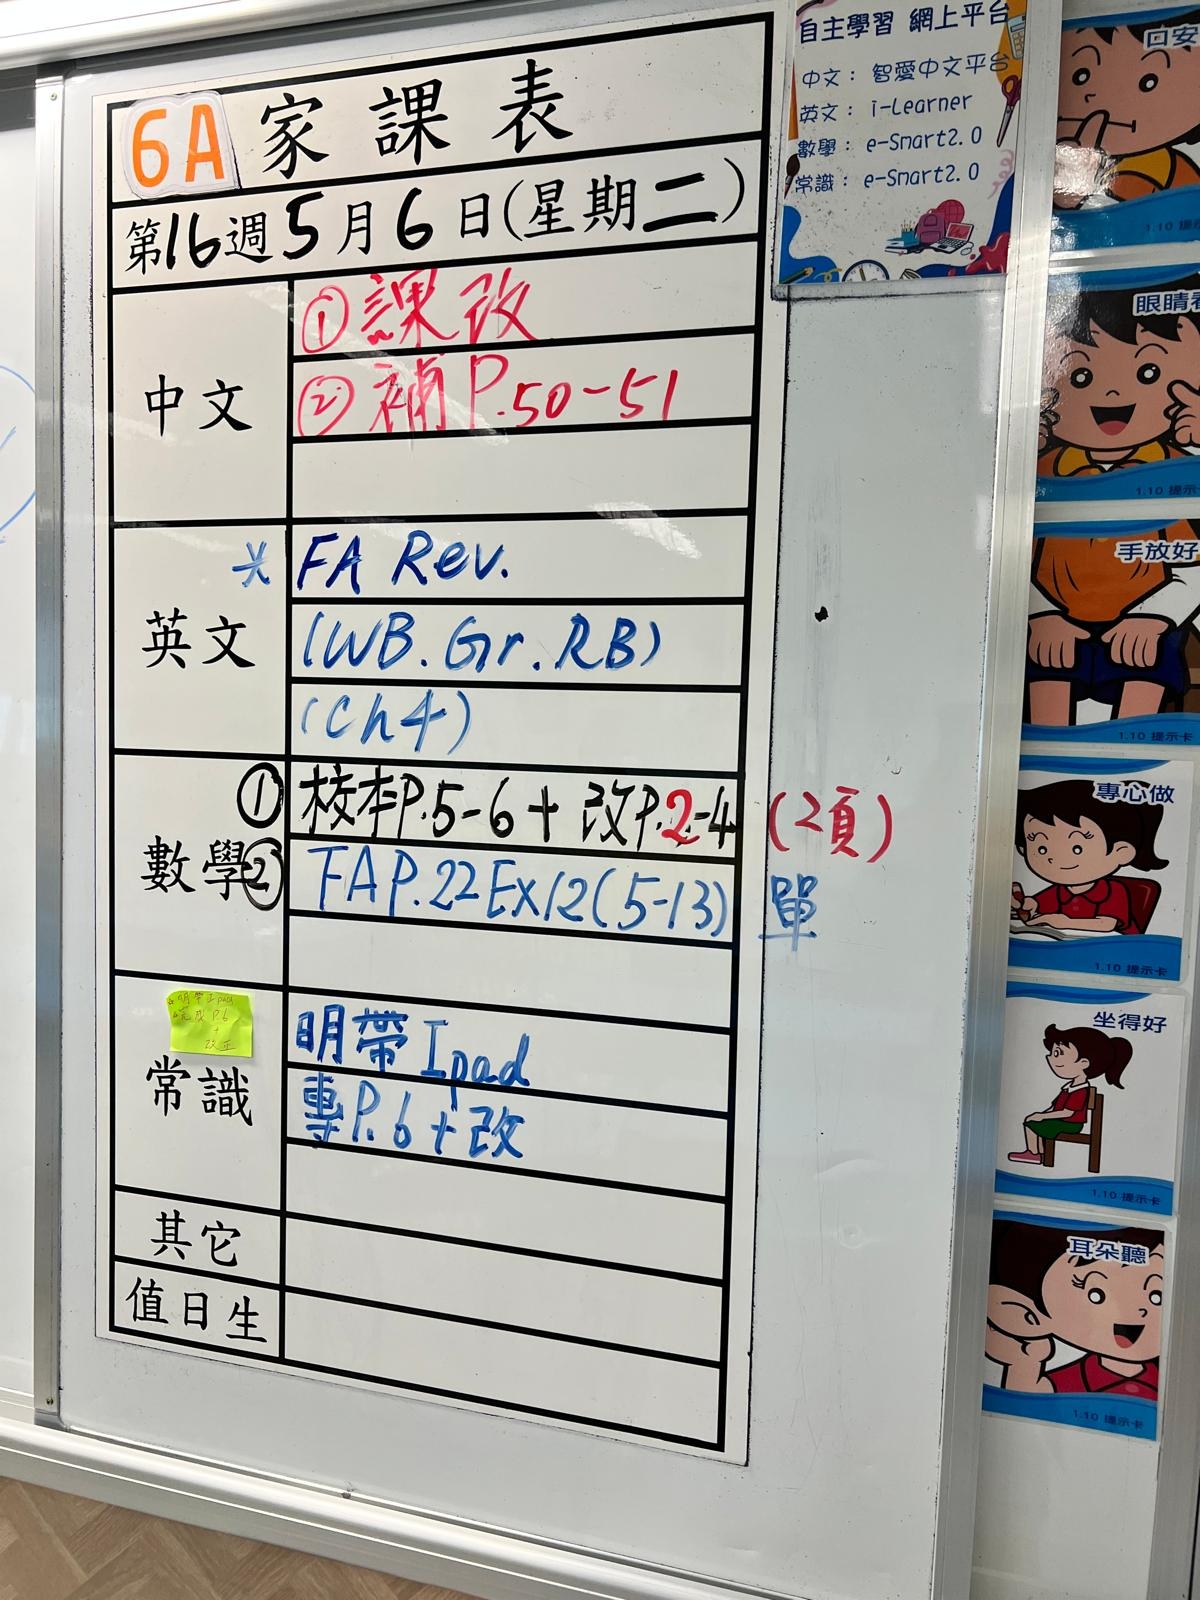 6A 家課表
第16週5月6日(星期二)
中文
① 課改
② 補 P.50-51
英文
* FA Rev.
(WB. Gr. RB)
(Ch4)
數學
① 校本P.5-6 + 改P.2-4 (2頁)
② FA P.22 Ex12(5-13) 單
常識
明帶Ipad
完成 P.6
+
改正
明帶 Ipad
專P.6+改
其它
值日生
自主學習 網上平台
中文： 智愛中文平台
英文： i-Learner
數學： e-Smart2.0
常識： e-Smart2.0
口安
1.10 提
眼睛看
1.10 提示
手放好
1.10 提示卡
專心做
1.10 提示卡
坐得好
1.10 提示卡
耳朵聽
1.10 提示卡